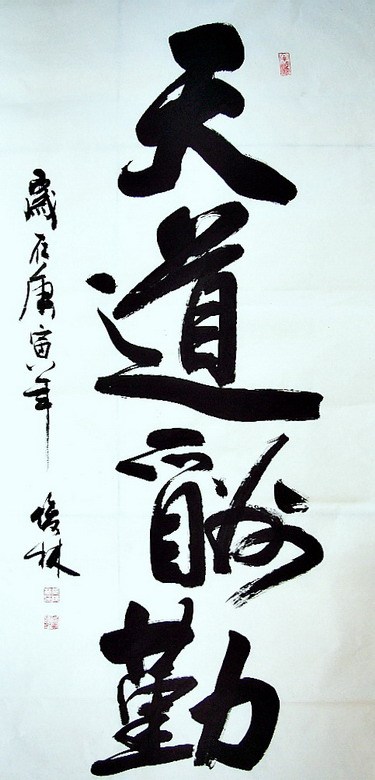 天道酬勤
歲在庚寅年 培林